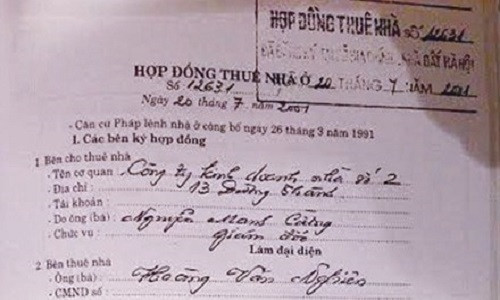 HỢP ĐỒNG THUÊ NHÀ SỐ 12631
20 THÁNG 7 NĂM 2001
HỢP ĐỒNG THUÊ NHÀ Ở
Số 12631
Ngày 20 tháng 7 năm 2001
- Căn cứ Pháp lệnh nhà ở công bố ngày 26 tháng 3 năm 1991
I. Các bên ký hợp đồng
1 Bên cho thuê nhà
- Tên cơ quan Công ty kinh doanh nhà số 2
- Địa chỉ : 13 Đường Thành
- Tài khoản :
- Do ông (bà) : Nguyễn Mạnh Cường
- Chức vụ : Giám đốc
Làm đại diện
2 Bên thuê nhà
- Ông (bà) : Hoàng Văn Nghiên
- CMND số :